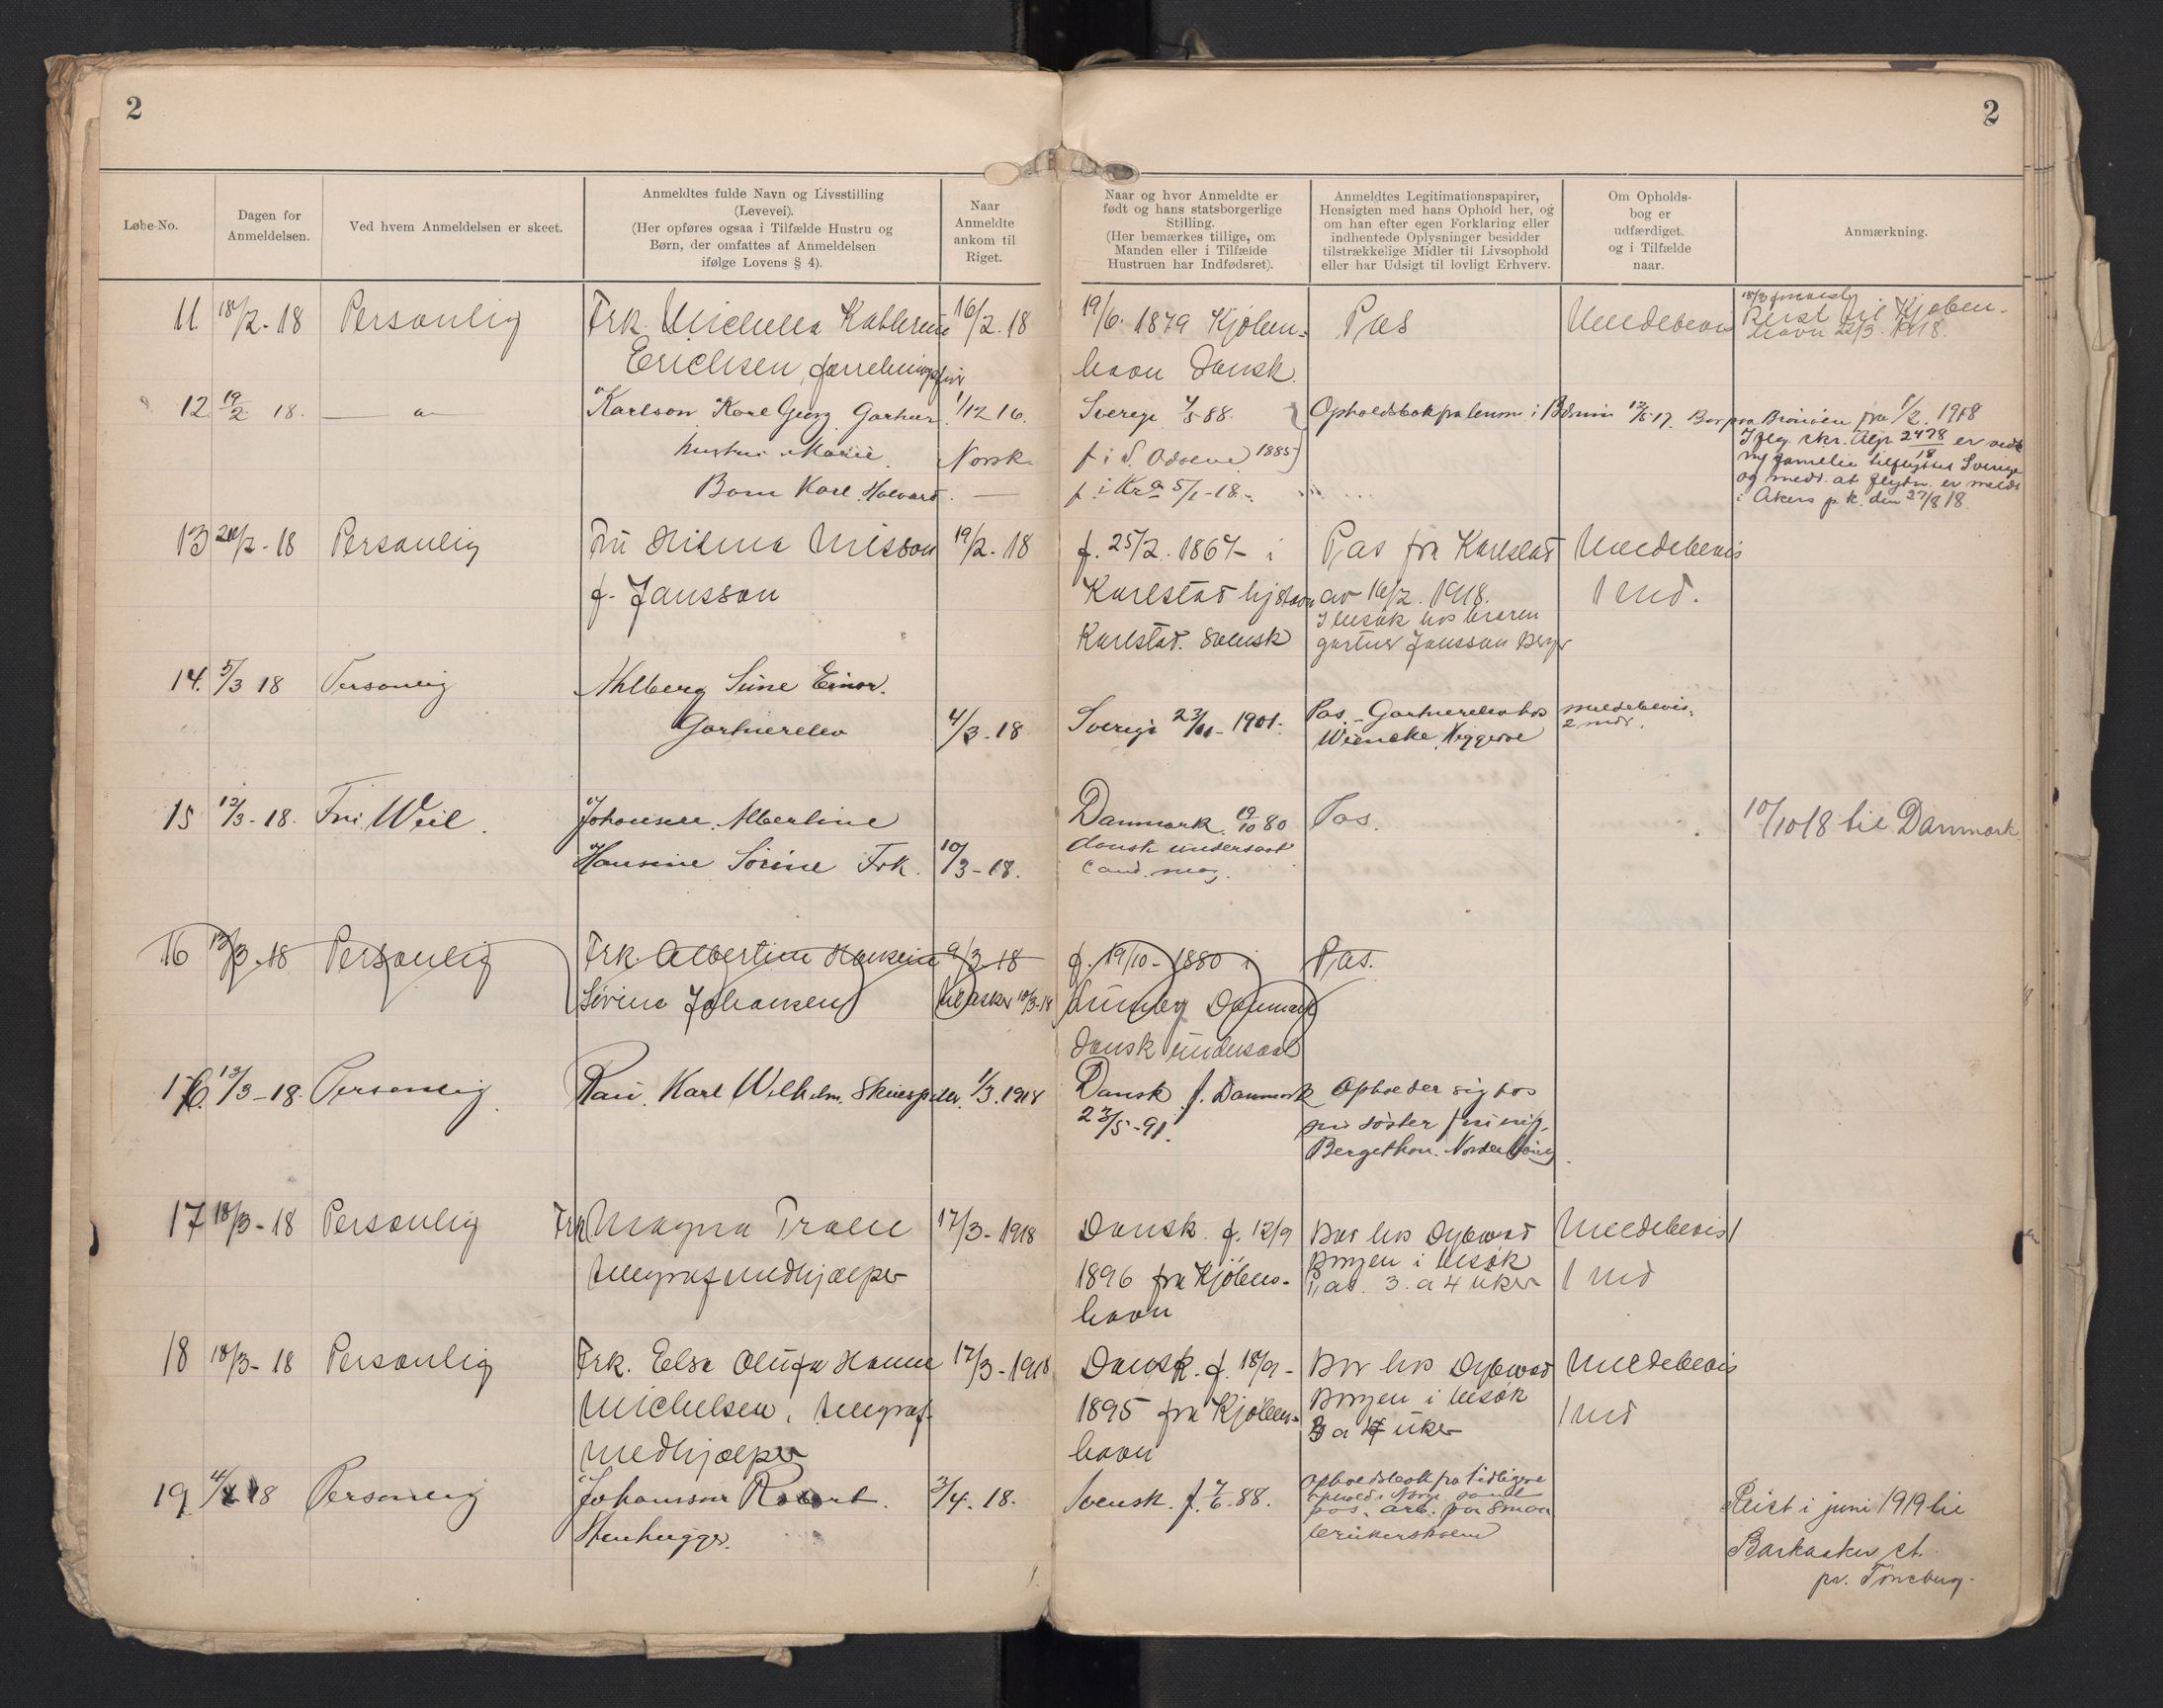 2
2
Løbe-No.
Dagen for
Anmeldelsen.
Ved hvem Anmeldelsen er skeet.
Anmeldtes fulde Navn og Livsstilling
(Levevei).
(Her opføres ogsaa i Tilfælde Hustru og
Børn, der omfattes af Anmeldelsen
ifølge Lovens § 4).
Naar
Anmeldte
ankom til
Riget.
Naar og hvor Anmeldte er
født og hans statsborgerlige
Stilling.
(Her bemærkes tillige, om
Manden eller i Tilfælde
Hustruen har Indfødsret).
Anmeldtes Legitimationspapirer,
Hensigten med hans Ophold her, og
om han efter egen Forklaring eller
indhentede Oplysninger besidder
tilstrækkelige Midler til Livsophold
eller har Udsigt til lovligt Erhverv.
Om Opholds-
bog er
udfærdiget.
og i Tilfælde
naar.
Anmærkning.
11 18/2-18 Personlig Frk. Kathrine 16/2.18 19/6. 1879 Kjøben- Pas
Erichsen havn Dansk.
Reist til Kjøben-
havn 1918.
12 19/2 18. — " — Karlson Karl Georg Gartner. 1/12 16. Sverige 4/5 88. 1/2. 1918
hustru Marie Norsk f. i S. Odalen 1885
Barn Karl Halvard. — f. i Kra 5/1-18.
Ifølg skr. 2478/18 er
familie tilflyttet Sverige
og medd. at flytn. er meldt
i Akers p.k. den 27/8 18.
13 20/2-18 Personlig Fru Hilma Nilsson 19/2-18 f. 25/2. 1867 i Pas fra Karlstad Meldebevis
f. Jansson Karlstad av 16/2. 1918. 1 mnd.
Karlstad. Svensk I besøk hos broren
gartner Jansson
14. 5/3 18 Personlig Ahlberg Sune Einar.
Gartnerelev 4/3-18 Sverige 1901. Pas. Gartnerelev hos meldebevis
Wiencke 2 mdr.
15 12/3-18. Fru Weil. Johansen. Albertine Danmark. 19/10 80 Pas. 10/10 18 til Danmark.
Hansine Sørine Frk. 10/3-18. dansk undersaat
cand. mag.
16 12/3-18 Personlig Frk. Albertine Hansine 9/3-18 f. 19/10-1880 i Pas.
Sørine Johansen til Asker 10/3-18 Danmark
dansk undersaat
16. 13/3-18. Personlig. Rau. Karl Wilhelm. Skuespiller. 1/3.1918 Dansk f. Danmark Opholder sig hos
23/5-91. sin søster
Bergethon.
17 18/3-18 Personlig Frk Magna Tralle 17/3-1918 Dansk. f. 12/9 Bor hos Dybwad Meldebevis
telegrafmedhjælper 1896 fra Kjøben- i besøk 1 md
havn Pas. 3 a 4 uker
18 18/3-18 Personlig Frk. Else Olufa Hanne 17/3-1918 Dansk. f. 18/9- Bor hos Dybwad Meldebevis
Michelsen, telegraf- 1895 fra Kjøben- i besøk 1 md
medhjælper havn 3 a 4 uker
19 4/4 18 Personlig Johansson Robert. 3/4.18. Svensk. f. 7/6-88. Opholdsbok fra tidligere
Stenhugger. ophold i Norge samt
pas. arb. paa
Reist i juni 1919 til
Barkaaker st.
pr. Tönsberg.